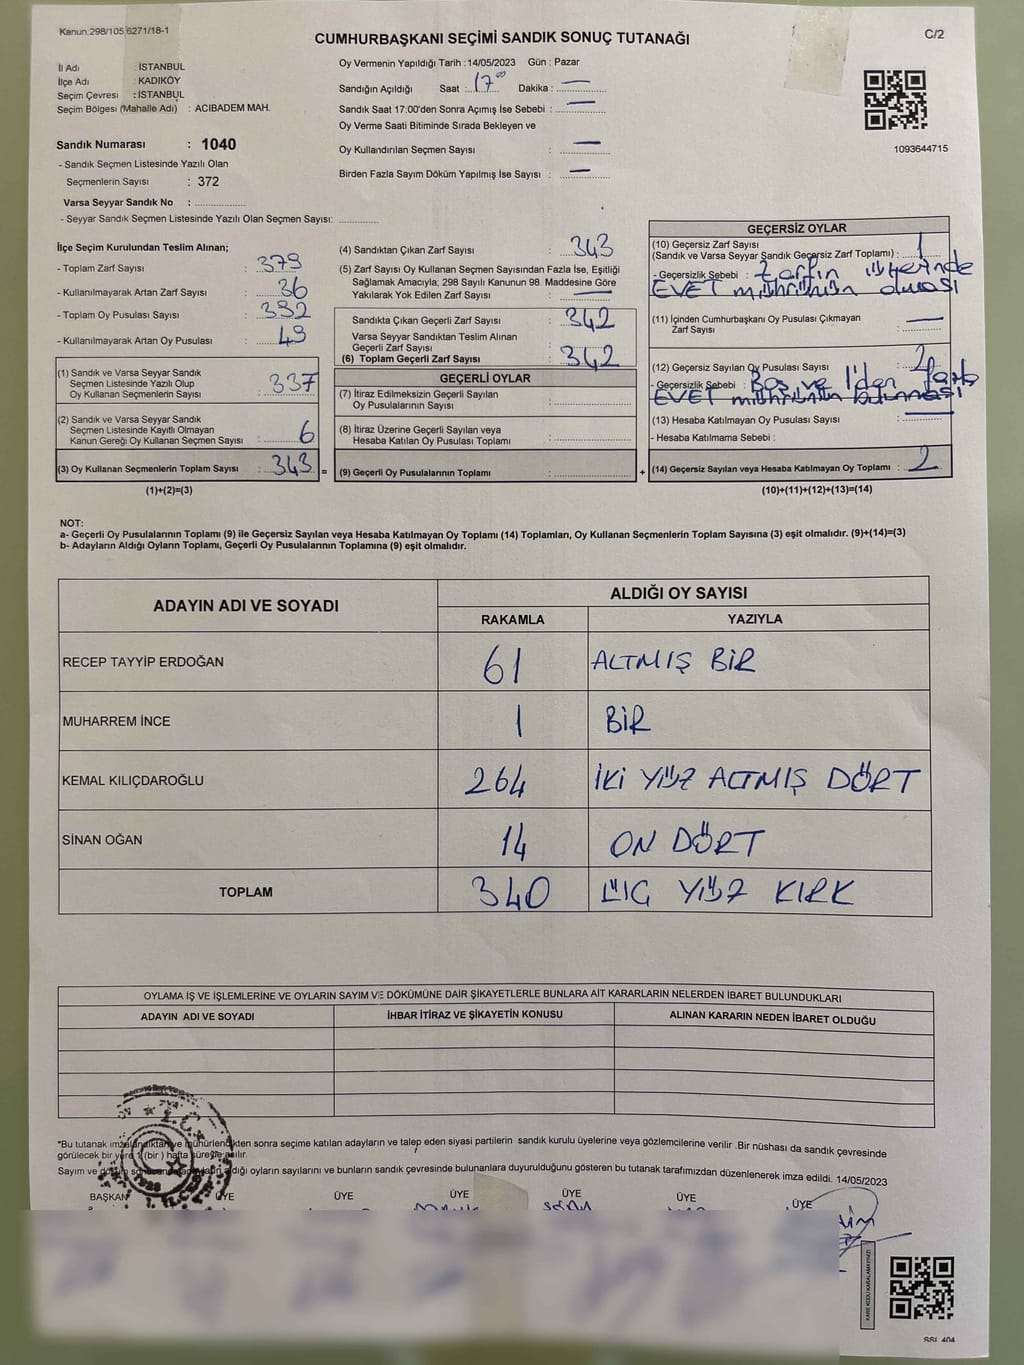 Kanun:298/105 6271/18-1
C/2
CUMHURBAŞKANI SEÇİMİ SANDIK SONUÇ TUTANAĞI
İl Adı : İSTANBUL
İlçe Adı : KADIKÖY
Seçim Çevresi : İSTANBUL
Seçim Bölgesi (Mahalle Adı) : ACIBADEM MAH.
Sandık Numarası : 1040
- Sandık Seçmen Listesinde Yazılı Olan
Seçmenlerin Sayısı : 372
Varsa Seyyar Sandık No :
- Seyyar Sandık Seçmen Listesinde Yazılı Olan Seçmen Sayısı:
Oy Vermenin Yapıldığı Tarih :14/05/2023 Gün : Pazar
Sandığın Açıldığı Saat : 17 00 Dakika : —
Sandık Saat 17:00'den Sonra Açımış İse Sebebi : —
Oy Verme Saati Bitiminde Sırada Bekleyen ve
Oy Kullandırılan Seçmen Sayısı : —
Birden Fazla Sayım Döküm Yapılmış İse Sayısı : —
1093644715
İlçe Seçim Kurulundan Teslim Alınan;
- Toplam Zarf Sayısı : 379
- Kullanılmayarak Artan Zarf Sayısı : 36
- Toplam Oy Pusulası Sayısı : 392
- Kullanılmayarak Artan Oy Pusulası : 49
(1) Sandık ve Varsa Seyyar Sandık
Seçmen Listesinde Yazılı Olup
Oy Kullanan Seçmenlerin Sayısı : 337
(2) Sandık ve Varsa Seyyar Sandık
Seçmen Listesinde Kayıtlı Olmayan
Kanun Gereği Oy Kullanan Seçmen Sayısı : 6
(3) Oy Kullanan Seçmenlerin Toplam Sayısı : 343 =
(1)+(2)=(3)
(4) Sandıktan Çıkan Zarf Sayısı : 343
(5) Zarf Sayısı Oy Kullanan Seçmen Sayısından Fazla İse, Eşitliği
Sağlamak Amacıyla; 298 Sayılı Kanunun 98. Maddesine Göre
Yakılarak Yok Edilen Zarf Sayısı : —
Sandıkta Çıkan Geçerli Zarf Sayısı : 342
Varsa Seyyar Sandıktan Teslim Alınan
Geçerli Zarf Sayısı :
(6) Toplam Geçerli Zarf Sayısı : 342
GEÇERLİ OYLAR
(7) İtiraz Edilmeksizin Geçerli Sayılan
Oy Pusulalarının Sayısı :
(8) İtiraz Üzerine Geçerli Sayılan veya
Hesaba Katılan Oy Pusulası Toplamı :
(9) Geçerli Oy Pusulalarının Toplamı : +
GEÇERSİZ OYLAR
(10) Geçersiz Zarf Sayısı
(Sandık ve Varsa Seyyar Sandık Geçersiz Zarf Toplamı) : 1
- Geçersizlik Sebebi : Zarfın üzerinde
EVET mührünün olması
(11) İçinden Cumhurbaşkanı Oy Pusulası Çıkmayan
Zarf Sayısı : —
(12) Geçersiz Sayılan Oy Pusulası Sayısı : 2
- Geçersizlik Sebebi : Boş ve 1'den fazla
EVET mührünün bulunması
(13) Hesaba Katılmayan Oy Pusulası Sayısı : —
- Hesaba Katılmama Sebebi :
(14) Geçersiz Sayılan veya Hesaba Katılmayan Oy Toplamı : 2
(10)+(11)+(12)+(13)=(14)
NOT:
a- Geçerli Oy Pusulalarının Toplamı (9) ile Geçersiz Sayılan veya Hesaba Katılmayan Oy Toplamı (14) Toplamları, Oy Kullanan Seçmenlerin Toplam Sayısına (3) eşit olmalıdır. (9)+(14)=(3)
b- Adayların Aldığı Oyların Toplamı, Geçerli Oy Pusulalarının Toplamına (9) eşit olmalıdır.
ADAYIN ADI VE SOYADI
ALDIĞI OY SAYISI
RAKAMLA YAZIYLA
RECEP TAYYİP ERDOĞAN 61 ALTMIŞ BİR
MUHARREM İNCE 1 BİR
KEMAL KILIÇDAROĞLU 264 İKİ YÜZ ALTMIŞ DÖRT
SİNAN OĞAN 14 ON DÖRT
TOPLAM 340 ÜÇ YÜZ KIRK
OYLAMA İŞ VE İŞLEMLERİNE VE OYLARIN SAYIM VE DÖKÜMÜNE DAİR ŞİKAYETLERLE BUNLARA AİT KARARLARIN NELERDEN İBARET BULUNDUKLARI
ADAYIN ADI VE SOYADI İHBAR İTİRAZ VE ŞİKAYETİN KONUSU ALINAN KARARIN NEDEN İBARET OLDUĞU
*Bu tutanak imzalandıktan ve mühürlendikten sonra seçime katılan adayların ve talep eden siyasi partilerin sandık kurulu üyelerine veya gözlemcilerine verilir .Bir nüshası da sandık çevresinde
görülecek bir yere 1 (bir) hafta süreyle asılır.
Sayım ve döküm aldığı oyların sayılarını ve bunların sandık çevresinde bulunanlara duyurulduğunu gösteren bu tutanak tarafımızdan düzenlenerek imza edildi. 14/05/2023
BAŞKAN ÜYE ÜYE ÜYE ÜYE ÜYE ÜYE
KARE KODU KARALAMAYINIZ!